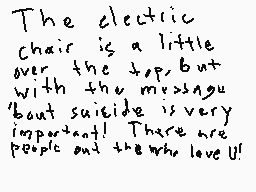 The electric
chair is a little
over the top, but
with the message
'bout suicide is very
important! There are
people out there who love U!